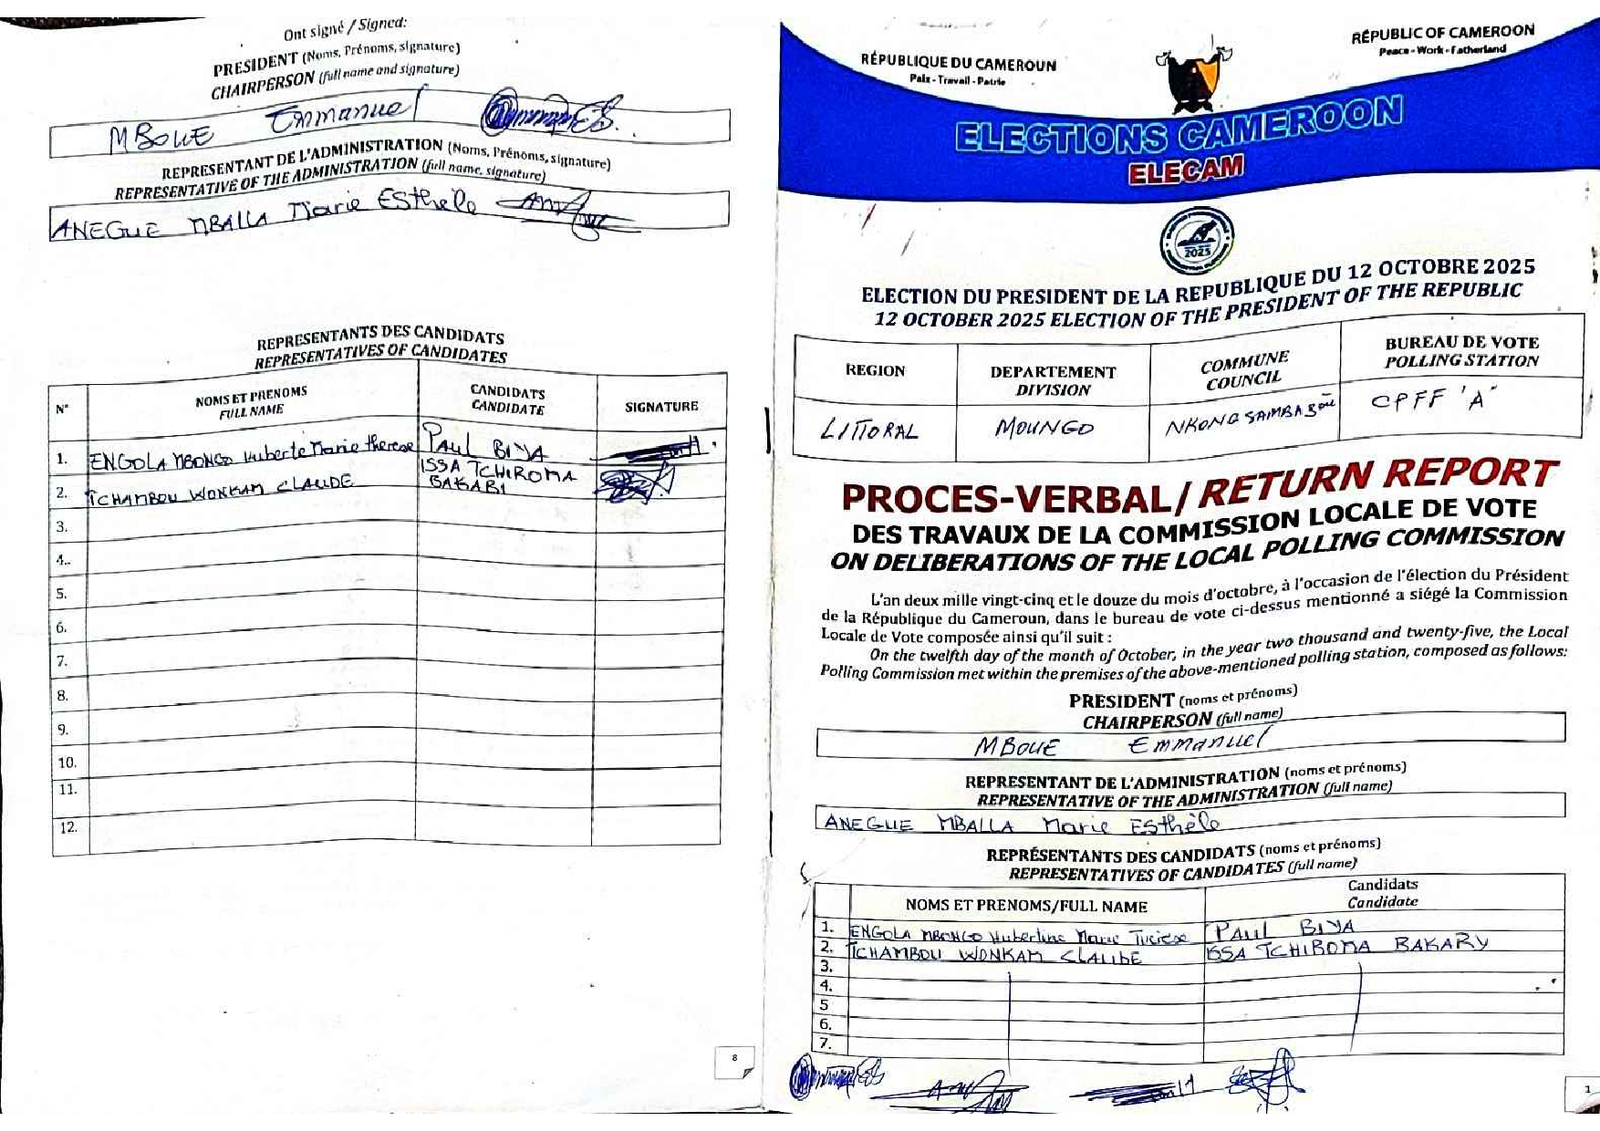 Ont signé / Signed:
PRESIDENT (Noms, Prénoms, signature)
CHAIRPERSON (full name and signature)
MBOUE Emmanuel
REPRESENTANT DE L'ADMINISTRATION (Noms, Prénoms, signature)
REPRESENTATIVE OF THE ADMINISTRATION (full name, signature)
ANEGUE MBALLA Marie ESthèle
REPRESENTANTS DES CANDIDATS
REPRESENTATIVES OF CANDIDATES
N° NOMS ET PRENOMS FULL NAME CANDIDATS CANDIDATE SIGNATURE
1. ENGOLA MBONGO Huberte Marie therese PAUL BIYA
2. TCHAMBOU WONKAM CLAUDE ISSA TCHIROMA BAKARI
3.
4..
5.
6.
7.
8.
9.
10.
11.
12.
8
RÉPUBLIQUE DU CAMEROUN
Paix - Travail - Patrie
RÉPUBLIC OF CAMEROON
Peace - Work - Fatherland
ELECTIONS CAMEROON
ELECAM
2025
ELECTION DU PRESIDENT DE LA REPUBLIQUE DU 12 OCTOBRE 2025
12 OCTOBER 2025 ELECTION OF THE PRESIDENT OF THE REPUBLIC
REGION DEPARTEMENT DIVISION COMMUNE COUNCIL BUREAU DE VOTE POLLING STATION
LITTORAL MOUNGO NKONGSAMBA CPFF "A"
PROCES-VERBAL/ RETURN REPORT
DES TRAVAUX DE LA COMMISSION LOCALE DE VOTE
ON DELIBERATIONS OF THE LOCAL POLLING COMMISSION
L'an deux mille vingt-cinq et le douze du mois d'octobre, à l'occasion de l'élection du Président
de la République du Cameroun, dans le bureau de vote ci-dessus mentionné a siégé la Commission
Locale de Vote composée ainsi qu'il suit :
On the twelfth day of the month of October, in the year two thousand and twenty-five, the Local
Polling Commission met within the premises of the above-mentioned polling station, composed as follows:
PRESIDENT (noms et prénoms)
CHAIRPERSON (full name)
MBOUE Emmanuel
REPRESENTANT DE L'ADMINISTRATION (noms et prénoms)
REPRESENTATIVE OF THE ADMINISTRATION (full name)
ANEGUE MBALLA Marie ESthèle
REPRÉSENTANTS DES CANDIDATS (noms et prénoms)
REPRESENTATIVES OF CANDIDATES (full name)
NOMS ET PRENOMS/FULL NAME Candidats Candidate
1. ENGOLA MBONGO Hubertine Marie PAUL BIYA
2. TCHAMBOU WONKAM CLAUDE ISSA TCHIROMA BAKARY
3.
4.
5
6.
7.
1